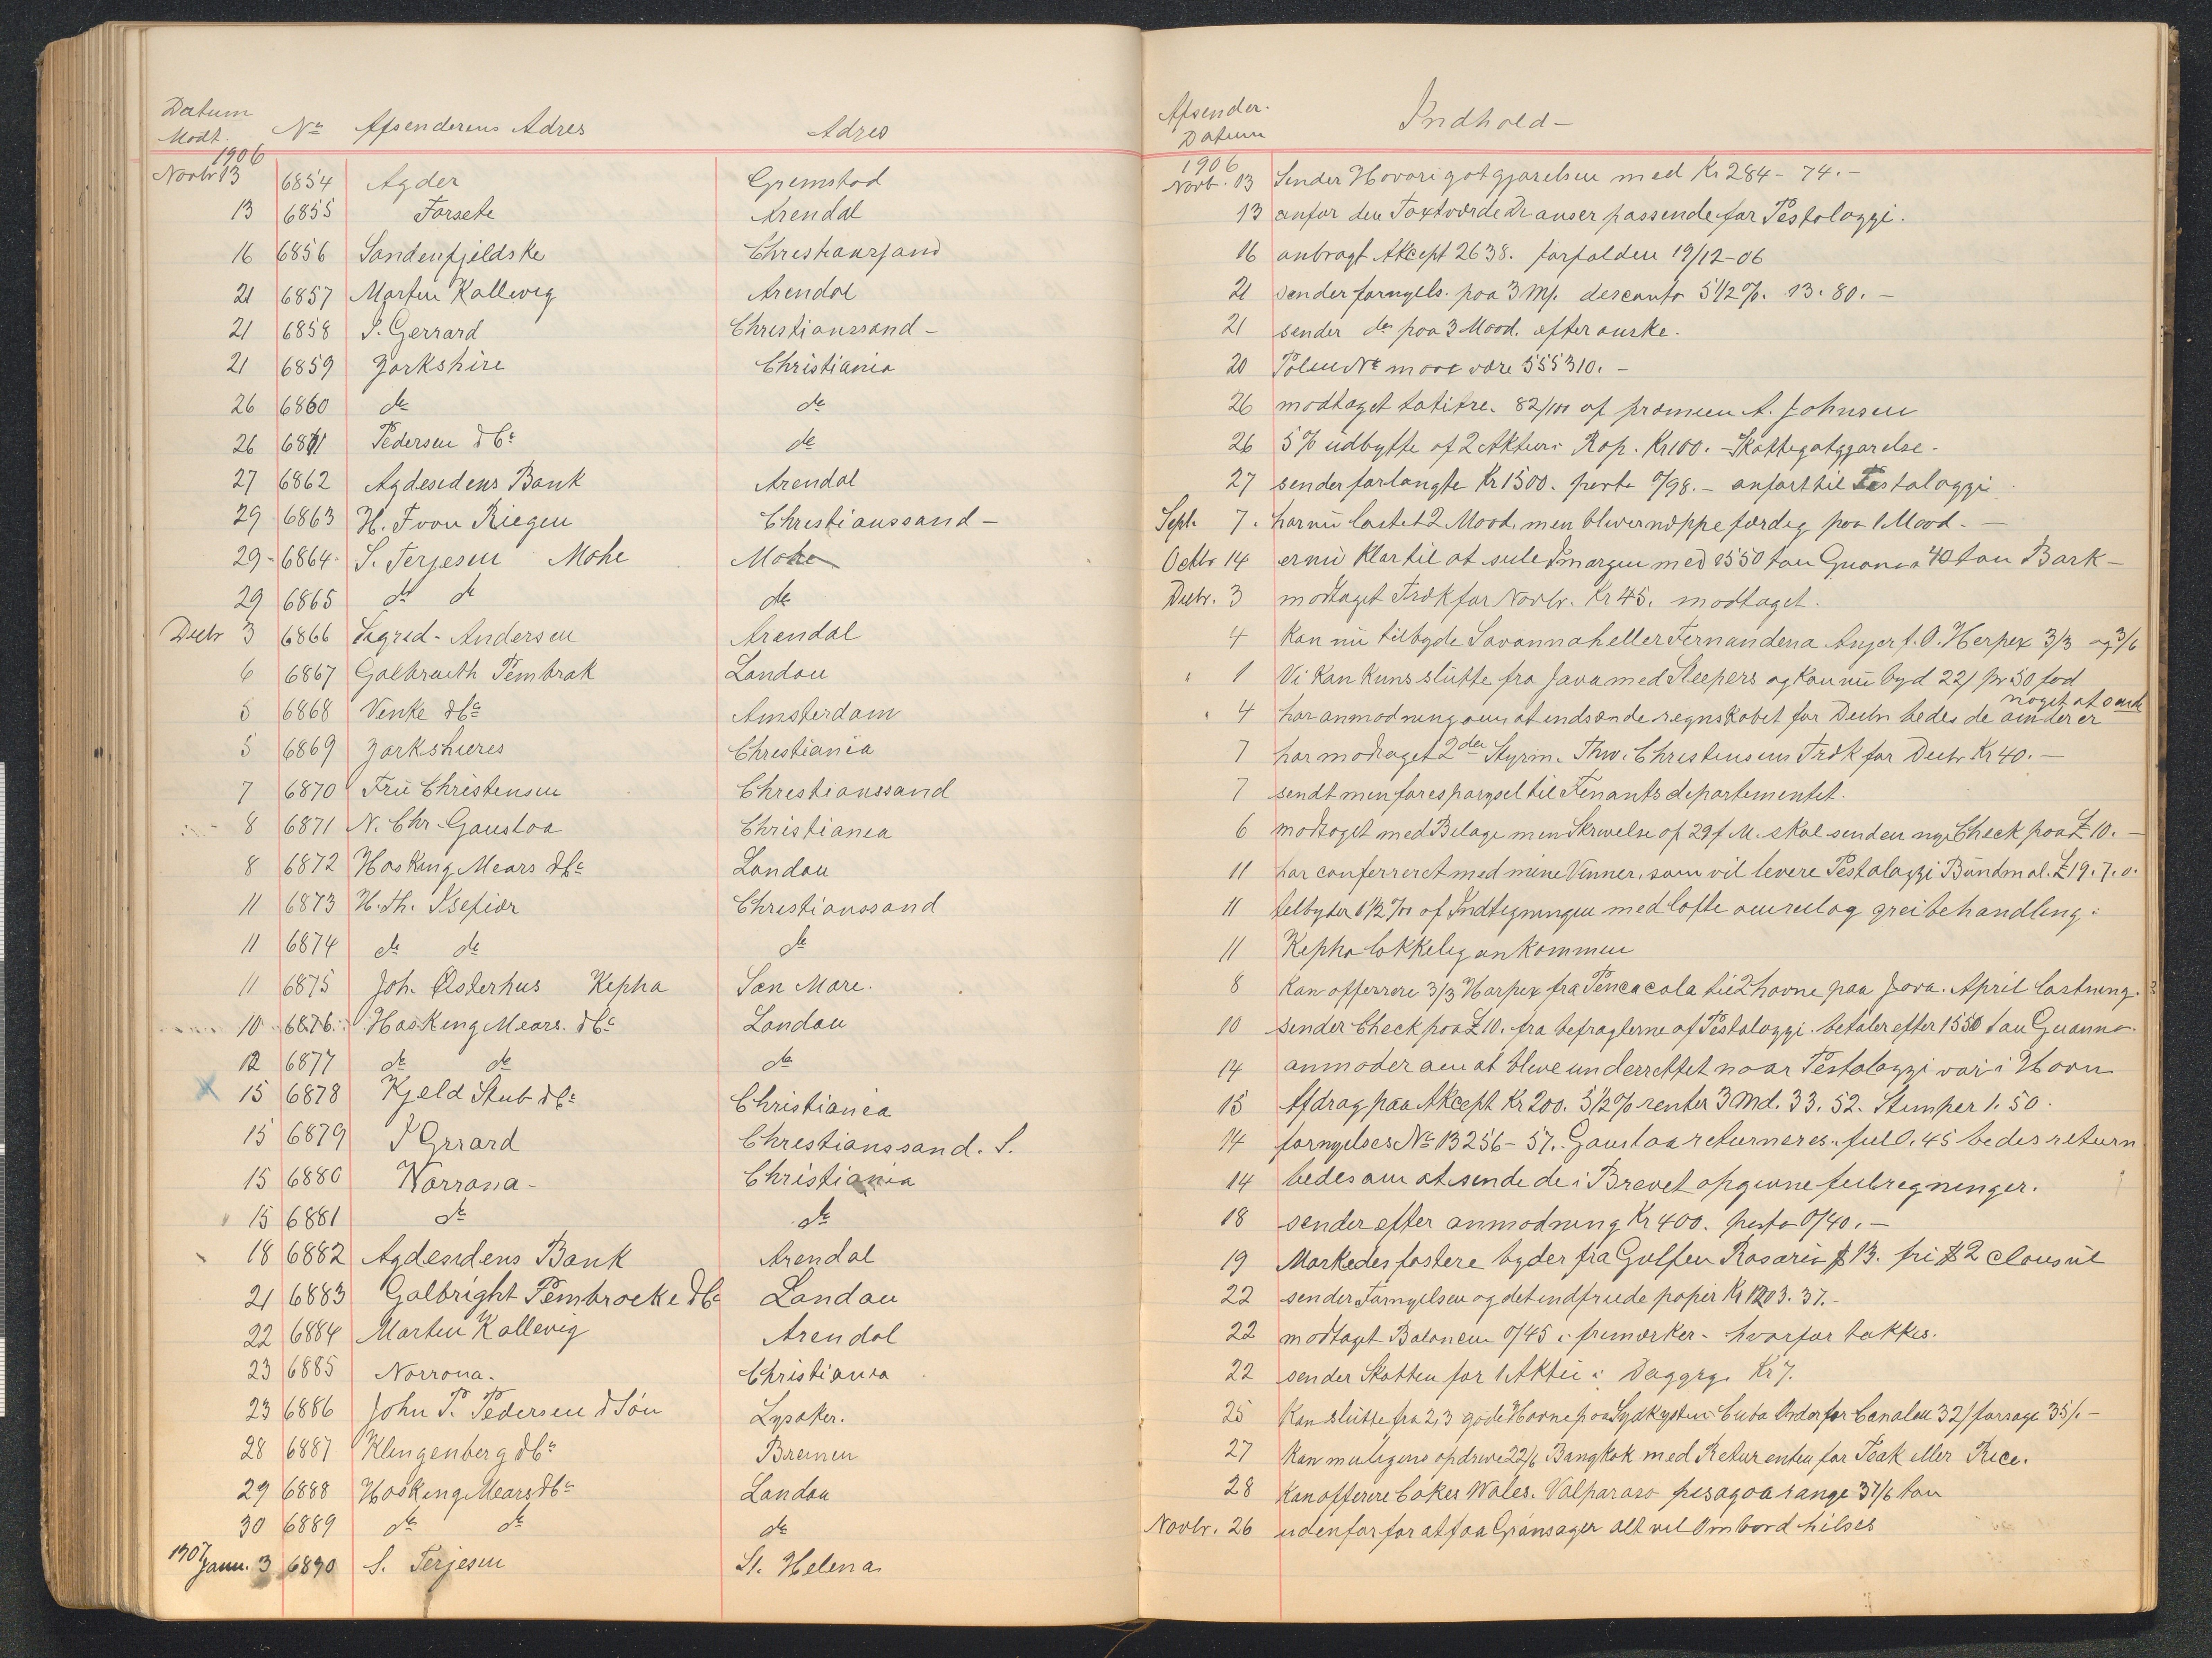 Datum
Modt. Nº Afsenderens Adres Adres
1906
Novbr 13 6854 Agder Gremstad
13 6855 Forsete Arendal
16 6856 Søndenfjeldske Christianssand
21 6857 Morten Kallevig Arendal
21 6858 S. Gerrard Christianssand -
21 6859 Yorkshire Christiania
26 6860 do do
26 6861 Pedersen & Co do
27 6862 Agdesidens Bank Arendal
29 6863 H. F von Riegen Christianssand -
29 - 6864 S. Terjesen Mahe Mahe
29 6865 do do do
Decbr 3 6866 Sigrid - Andersen Arendal
6 6867 Galbraith Pembrok London
5 6868 Venke & Co Amsterdam
5 6869 Yorkshires Christiania
7 6870 Frü Christensen Christianssand
8 6871 N. Chr. Gaustoa Christiania
8 6872 Hosking Mears & Co London
11 6873 H. Th. Isefiær Christianssand
11 6874 do do do
11 6875 Joh. Osterhus Kepha San Mare.
10 6876. Hosking Mears. & Co London
12 6877 do do do
15 6878 Kjeld Stub & Co Christiania
15 6879 S Grrard Christianssand. S.
15 6880 Norrøna - Christiania
15 6881 do do
18 6882 Agdesidens Bank Arendal
21 6883 Galbright Pembrocke & Co London
22 6884 Morten Kallevig Arendal
23 6885 Norrona. Christiania
23 6886 John P. Pedersen & Søn Lysaker.
28 6887 Klingenberg & Co Bremen
29 6888 Hosking Mears & Co London
30 6889 do do do
1907 Janu. 3 6890 S. Terjesen St. Helena
Afsender.
Datum Indhold -
1906
Novb. 13 Sender Havarigotgjørelsen med Kr 284 - 74. -
13 anfør den Taxtværde De anser passende for Pestalozzi.
16 anbragt Akcept 2638. forfalden 19/12-06
21 sender fornyels. paa 3 M/. desconto 5 1/2 %. 13. 80. -
21 sender do paa 3 Maad. efter ønske.
20 Polise Nº maae være 555310. -
26 modtaget 82/100 af præmien A. Johnsen
26 5 % udbytte af 2 Aktier i Rop. Kr 100. - Skattegotgjørelse -
27 sender forlangte Kr 1500. porto 0/98. - anført til Pestalozzi
Sept. 7. har nü lastet 2 Maad. men bliver næppe færdig paa 1 Maad. -
Octbr 14 er nü klar til at seile imorgen med 1550 ton Guano & 40 ton Bark -
Decbr. 3 modtaget Træk for Novbr. Kr 45. modtaget.
4 Kan nü tilbyde Savannah eller Fernandena Anjer f. O. Herpex 3/3 - 3/6
" 1 Vi kan kuns slutte fra Java med Sleepers og kan nü byd 22/ pr 50 fod
noget at sende
" 4 har anmodning om at indsende regnskabet for Decbr bedes de om der er
7 har modtaget 2den Styrm. Thv. Christensens Træk for Decbr Kr 40. -
7 sendt min forespørgsel til Finantsdepartementet.
6 modtaget med Bilage min Skrivelse af 29 f M. skal sende en nye Check paa £ 10. -
11 har conferreret med mine Venner, som vil levere Pestalozzi Bündmal. £ 19. 7. 0.
11 telbyder 1 1/2 % af Indtegningen med løfte om reel og grei behandling.
11 Kepha lykkelig ankommen
8 Kan offerere 3/3 Harpex fra Pencacola til 2 havne paa Java. April lastning.
10 sender Check paa £ 10. fra befragterne af Pestalozzi. betaler efter 1550 ton Guanno.
14 anmoder om at blive underrettet naar Pestalozzi var i Havn
15 Afdrag paa Akcept Kr 200. 5 1/2 % renter 3 Md. 33. 52. Stemper 1. 50.
14 fornyelses Nº 13256 - 57. Gaustoa returneres. feil 0. 45 bedes return
14 bedes om at sende de i Brevet opgivne feilregninger.
18 sender efter anmodning Kr 400. porto 0/40. -
19 Markedes fastere byder fra Gulfen Rosario $ 13. fri $ 2 clausül
22 sender Fornyelsen og det indfriede papir Kr 1203. 37. -
22 modtaget Balancen 0/45 i frimærker - hvorfor takkes.
22 sender Skatten for 1 Aktie i Daggry. Kr 7.
25 Kan slütte fra 2, 3 gode Havne paa Sydkysten Cuba Order for Canalen 32/ forsøge 35/. -
27 Kan muligens opdrive 22/6 Bangkok med Retur enten for Teak eller Rice.
28 Kan offerere Cokes Wales. Valparaso pisagoa range 37/6 ton
Novbr. 26 udenfor for at faa Grønsager alt vel Ombord hilses